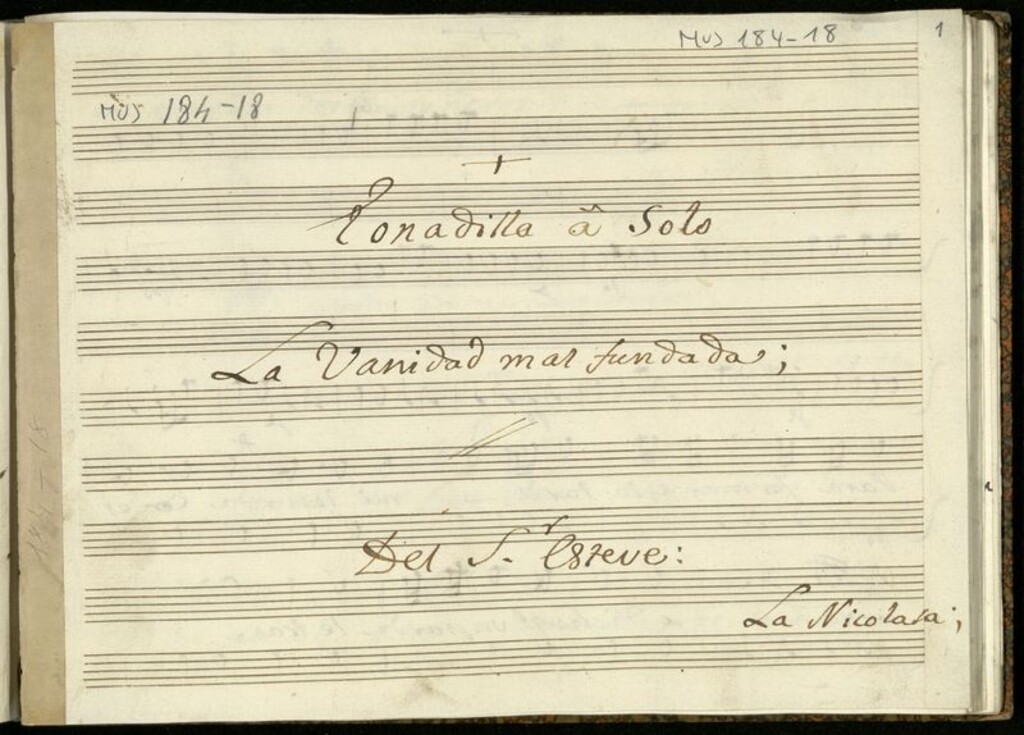 MUS 184-18
1
MUS 184-18
+
Tonadilla â Solo
La Vanidad mal fundada;
Del S.r Esteve:
La Nicolasa;